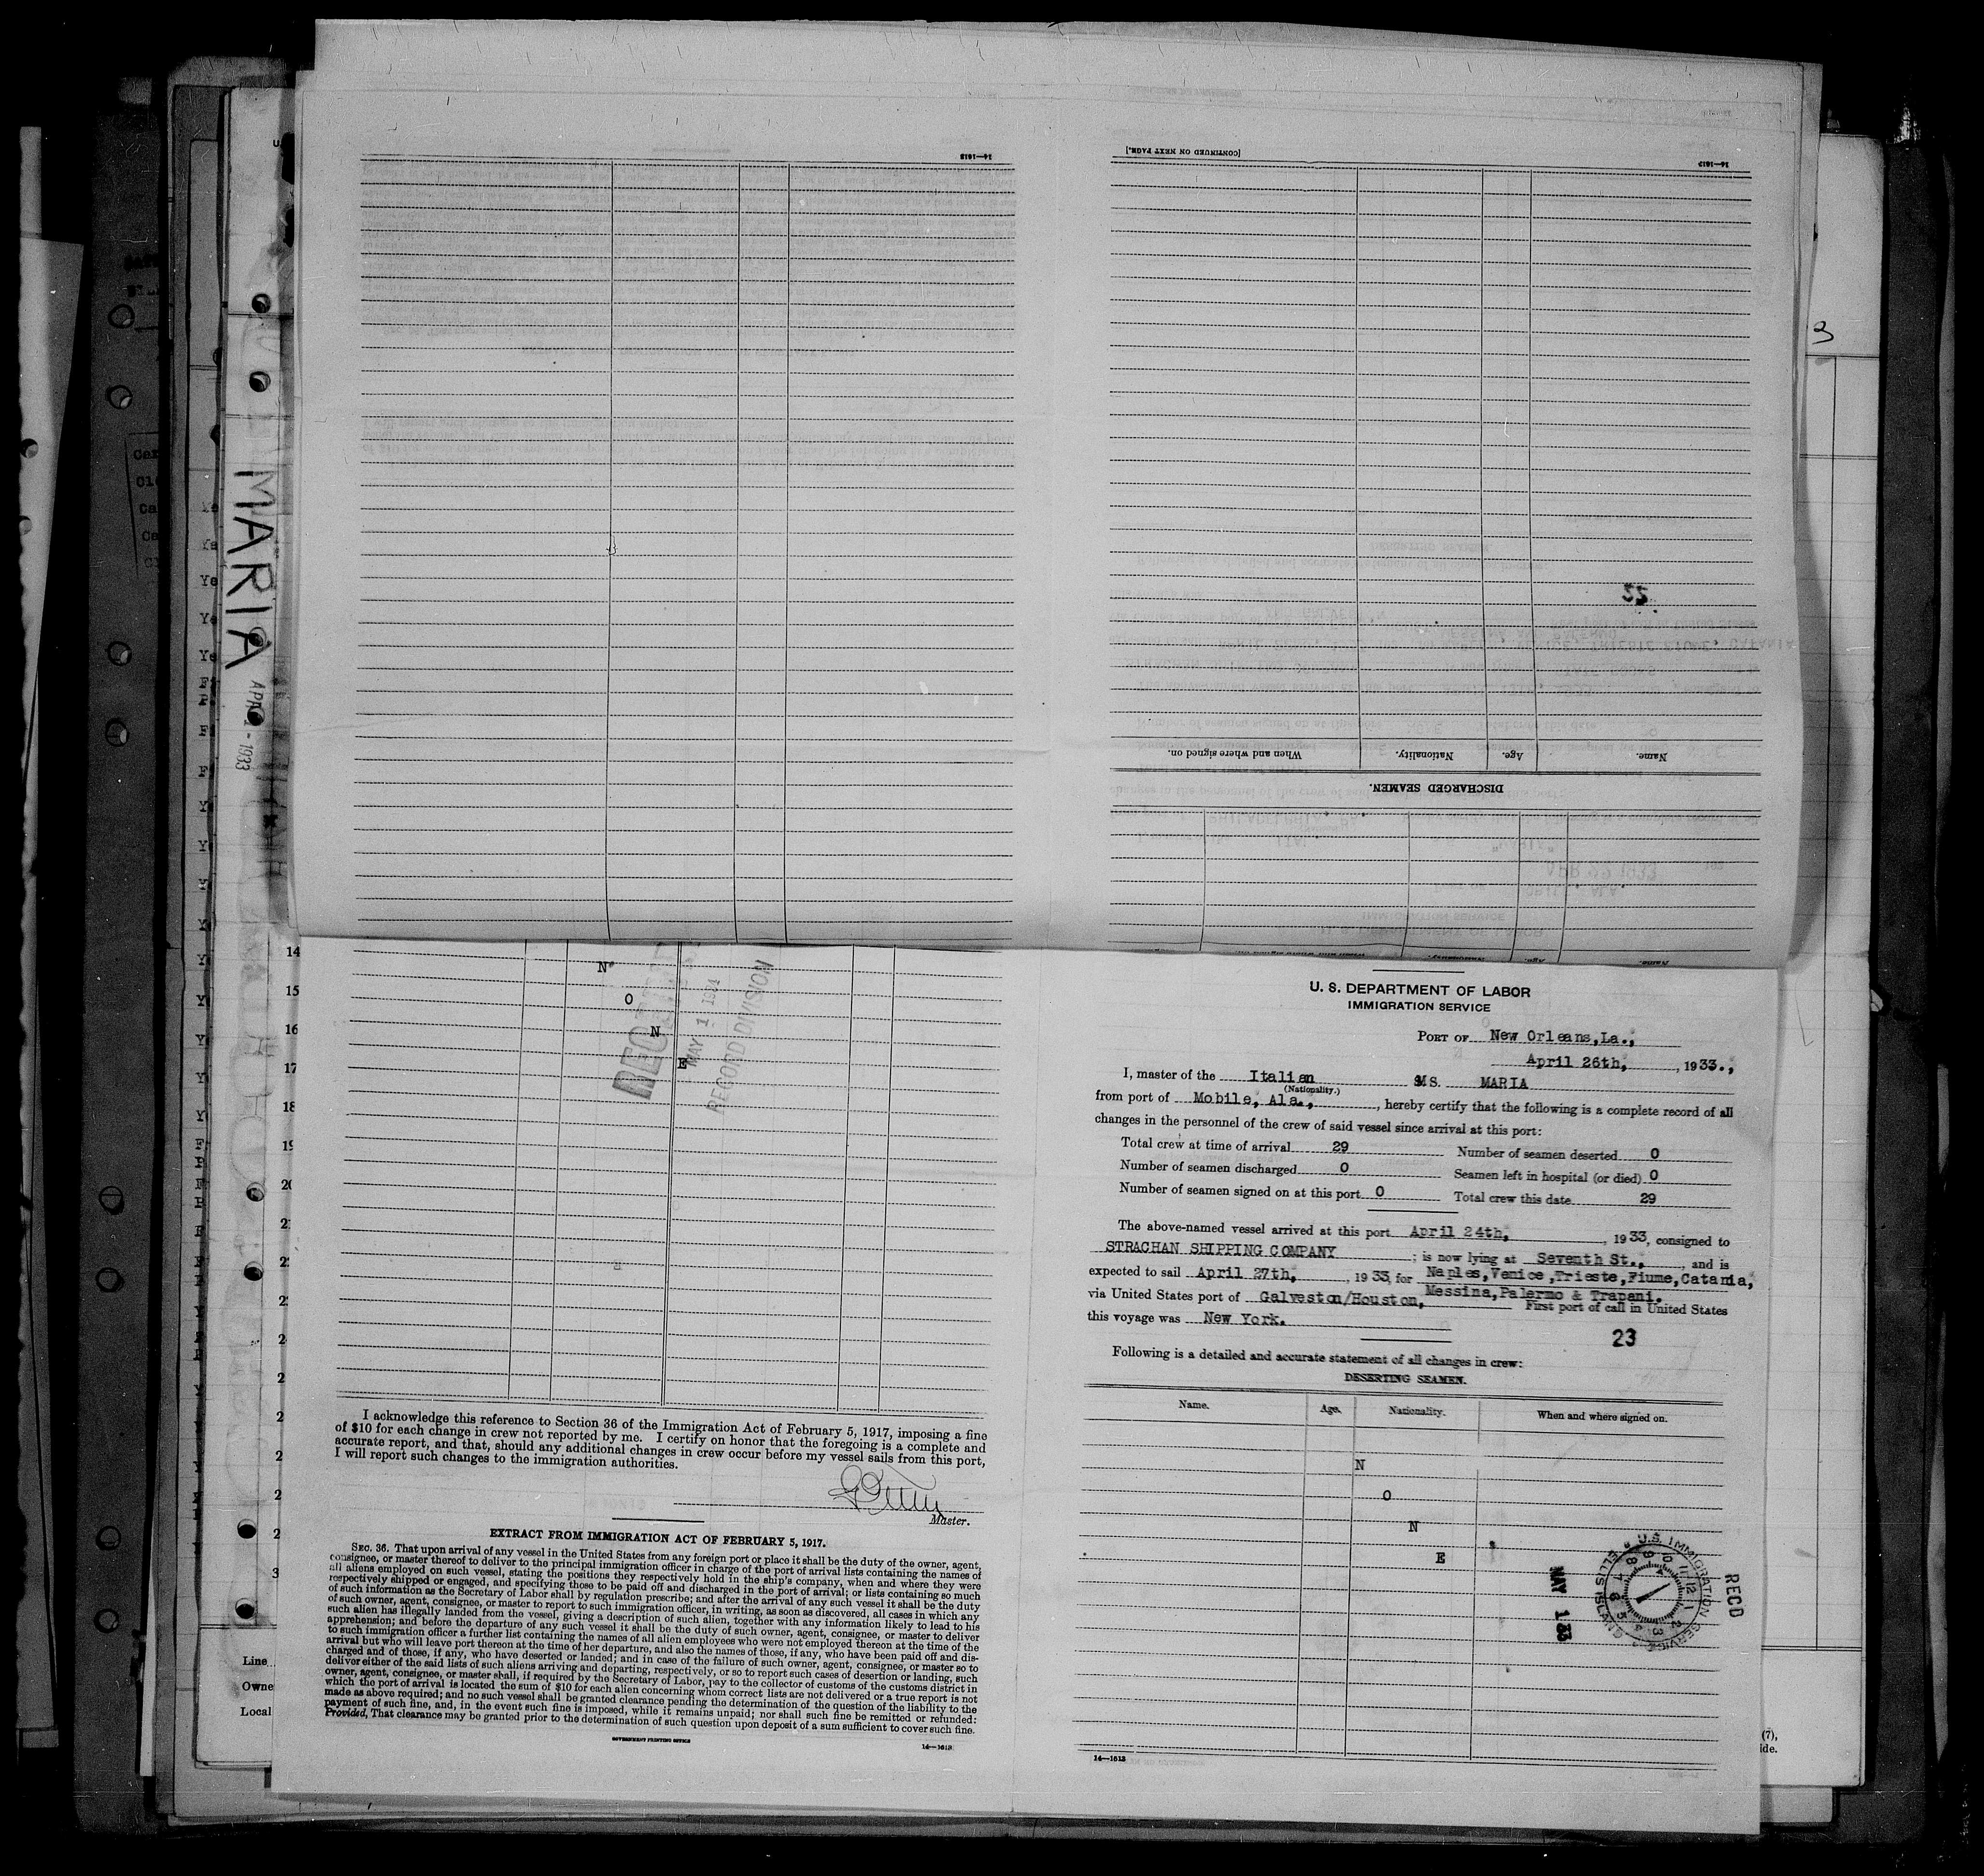 14—1613
[CONTINUED ON NEXT PAGE.]
14—1613
22
Name.
Age.
Nationality.
When and where signed on.
DISCHARGED SEAMEN.
MARIA
APR 2 - 1933
3
14
N
15
O
16
N
17
E
18
19
MAY 1 1934
RECORD DIVISION
I acknowledge this reference to Section 36 of the Immigration Act of February 5, 1917, imposing a fine
of $10 for each change in crew not reported by me. I certify on honor that the foregoing is a complete and
accurate report, and that, should any additional changes in crew occur before my vessel sails from this port,
I will report such changes to the immigration authorities.
Master.
EXTRACT FROM IMMIGRATION ACT OF FEBRUARY 5, 1917.
SEC. 36. That upon arrival of any vessel in the United States from any foreign port or place it shall be the duty of the owner, agent,
consignee, or master thereof to deliver to the principal immigration officer in charge of the port of arrival lists containing the names of
all aliens employed on such vessel, stating the positions they respectively hold in the ship's company, when and where they were
respectively shipped or engaged, and specifying those to be paid off and discharged in the port of arrival; or lists containing so much
of such information as the Secretary of Labor shall by regulation prescribe; and after the arrival of any such vessel it shall be the duty
of such owner, agent, consignee, or master to report to such immigration officer, in writing, as soon as discovered, all cases in which any
such alien has illegally landed from the vessel, giving a description of such alien, together with any information likely to lead to his
apprehension; and before the departure of any such vessel it shall be the duty of such owner, agent, consignee, or master to deliver
to such immigration officer a further list containing the names of all alien employees who were not employed thereon at the time of the
arrival but who will leave port thereon at the time of her departure, and also the names of those, if any, who have been paid off and dis-
charged and of those, if any, who have deserted or landed; and in case of the failure of such owner, agent, consignee, or master so to
deliver either of the said lists of such aliens arriving and departing, respectively, or so to report such cases of desertion or landing, such
owner, agent, consignee, or master shall, if required by the Secretary of Labor, pay to the collector of customs of the customs district in
which the port of arrival is located the sum of $10 for each alien concerning whom correct lists are not delivered or a true report is not
made as above required; and no such vessel shall be granted clearance pending the determination of the question of the liability to the
payment of such fine, and, in the event such fine is imposed, while it remains unpaid; nor shall such fine be remitted or refunded:
Provided, That clearance may be granted prior to the determination of such question upon deposit of a sum sufficient to cover such fine.
GOVERNMENT PRINTING OFFICE
14—1613
Line
Owne
Local
U. S. DEPARTMENT OF LABOR
IMMIGRATION SERVICE
PORT OF New Orleans, La.,
April 26th, , 1933.,
I, master of the Italian MS. MARIA
(Nationality.)
from port of Mobile, Ala., , hereby certify that the following is a complete record of all
changes in the personnel of the crew of said vessel since arrival at this port:
Total crew at time of arrival 29 Number of seamen deserted 0
Number of seamen discharged 0 Seamen left in hospital (or died) 0
Number of seamen signed on at this port 0 Total crew this date 29
The above-named vessel arrived at this port April 24th, , 1933, consigned to
STRACHAN SHIPPING COMPANY ; is now lying at Seventh St., , and is
expected to sail April 27th, , 1933, for Naples, Venice, Trieste, Fiume, Catania,
Messina, Palermo & Trapani.
via United States port of Galveston/Houston, First port of call in United States
this voyage was New York.
23
Following is a detailed and accurate statement of all changes in crew:
DESERTING SEAMEN.
Name. Age. Nationality. When and where signed on.
N
O
N
E
RECD
U.S. IMMIGRATION SERVICE ELLIS ISLAND
MAY 1 33
14—1613
(7),
ide.